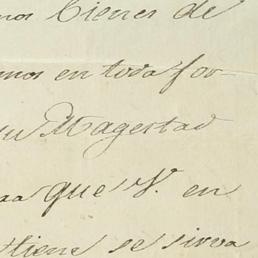 nos bienes de
mos en toda for-
su Magestad
que V. en
tiene se sirva